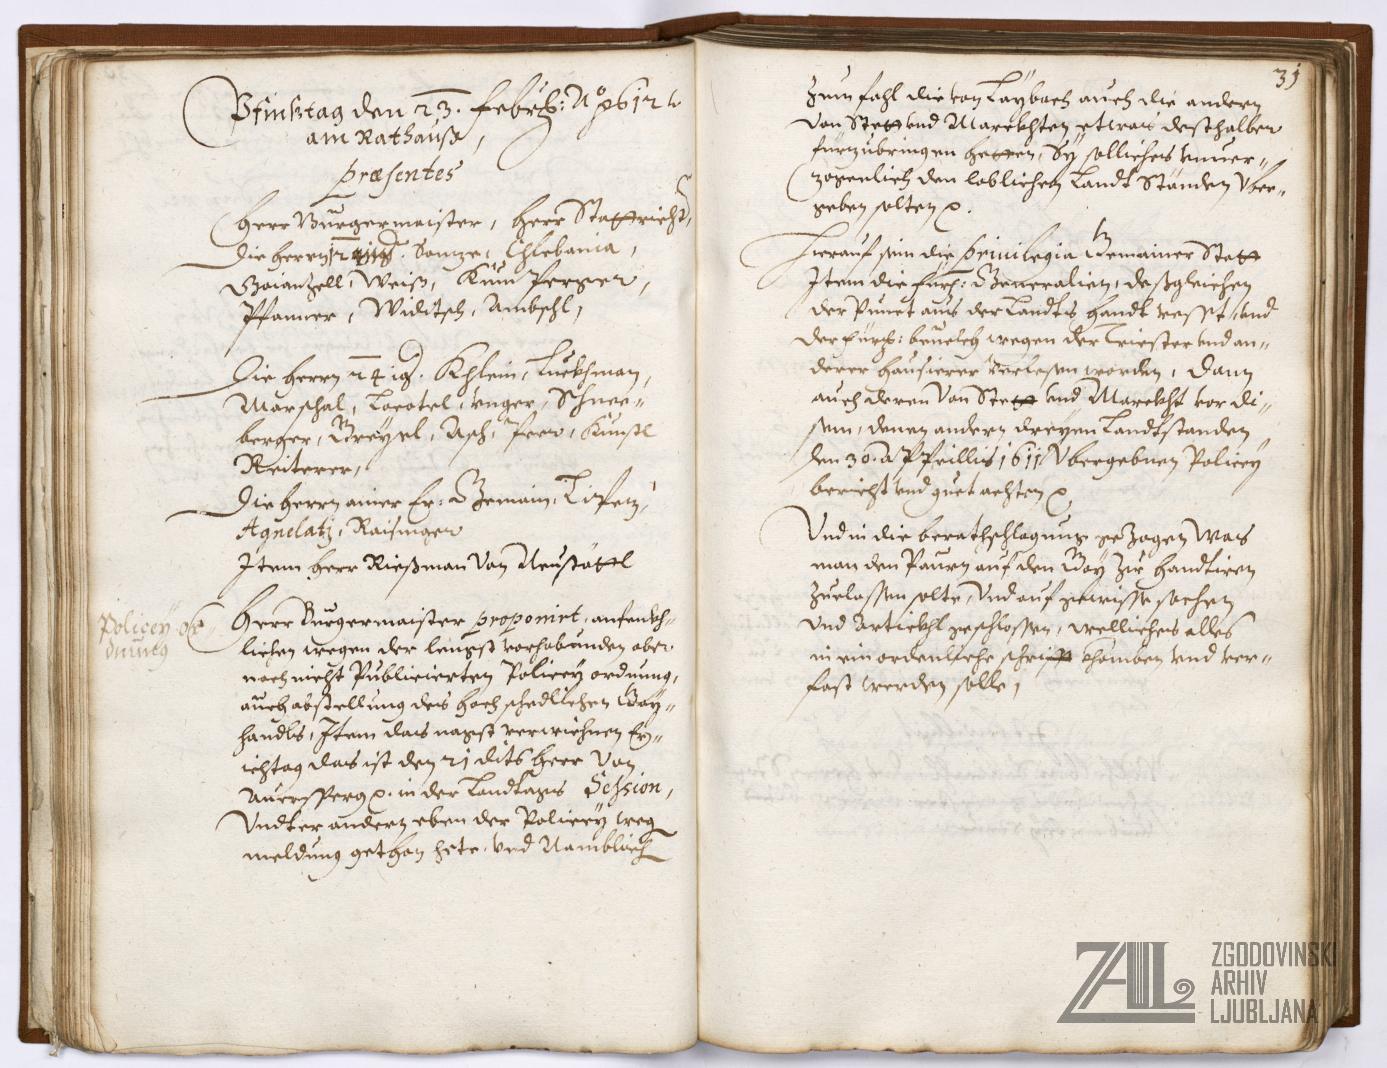 Pfinstag den 23. Febr: Ao 1612
am Rathauß,
præsentes
Herr Burgermaister, Herr Stattricht,
die herrn 12 iger. Sonze, Chlebania,
Gaianzell, Weiß, Kuni Perger,
Pfanner, Widitsch, Ambschl,
Die herrn 24 ig. Khlein, Luckhman,
Marschal, Locatel, unger, Schnee-
berger, Preysl, Asch, Peer, Künstl
Reiterer,
Die herrn ainer Er: Gemain, Lisez,
Agnelatz, Raisinger
Item herr Rießman von Neustättl
Policey Or
dnung
Herr Burgermaister proponirt, anfenkh-
lichen wegen der lengst vorhabunden aber
noch nicht Publicierten Policey ordnung,
auch abstellung des hoch schedlichen Gay-
handls, Item das nagst verwichnen Er-
ichtag das ist den 21 dits herr von
Auersperg in der Landtags Session,
Undter andern eben der Policey weg
meldung gethon hete, und Namblich
31
Zum fahl die von Laybach auch die andern
von Stett und Marckhten etwas desthalben
fürzubringen hetten, Sy solliches unuer-
zogenlich den loblichen Landt Ständen Vber-
geben solten
Hierauf sein die privilegia Gemainer Statt
Item die Furs: Generalien, desgleichen
der Punct aus der Landts handt vesst, und
der fürs: beuelch wegen der Triester und an-
derer hausierer verlesen worden, dann
auch deren von Stett und Marckht vor di-
sem, denen andern dreyen Landtstanden
den 30. Aprillis 1611 Vbergebnen Policey
bericht und guetachten
Und in die berathschlagung gezogen was
man den Paurn auf dem Gay zu handtiren
Zuelassen solte, Und auf gewisse sachen
und Artickhl geschlossen, wellicher alles
in ein ordenliche schrifft khomben und ver-
fast werden solle,
ZAL
ZGODOVINSKI
ARHIV
LJUBLJANA